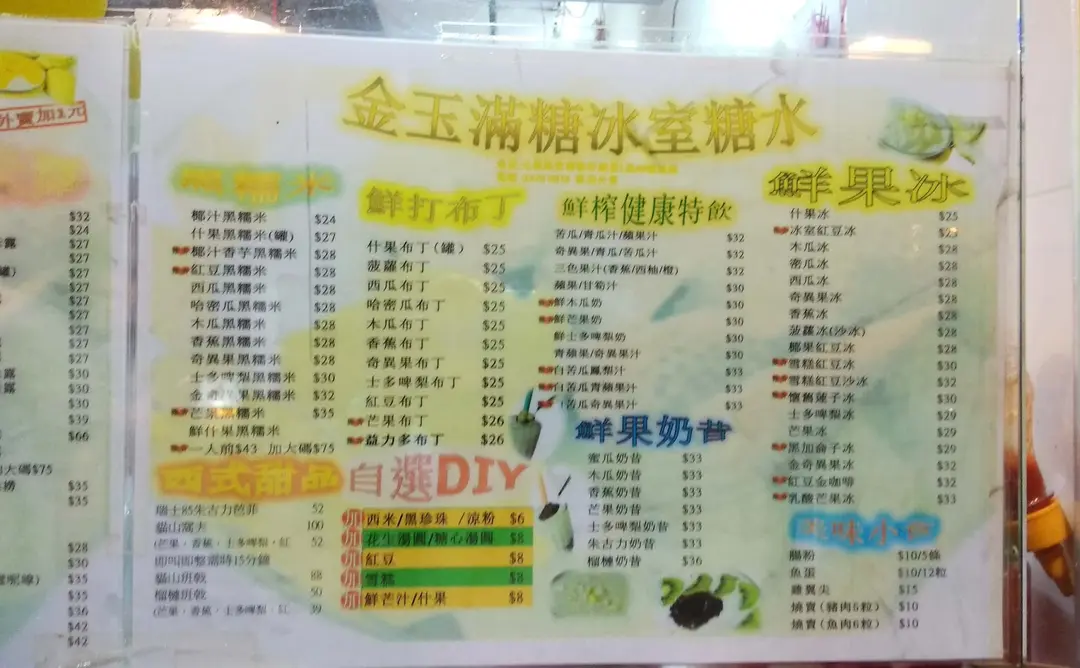 外賣加2元
$32
$24
$27
$27
$27
$27
$27
$27
$27
$30
$30
$30
$39
$66
加大碼$75
$35
$35
$28
$30
$35
$36
$42
$42
金玉滿糖冰室糖水
黑糯米
椰汁黑糯米 $24
什果黑糯米(罐) $27
椰汁香芋黑糯米 $28
紅豆黑糯米 $28
西瓜黑糯米 $28
哈密瓜黑糯米 $28
木瓜黑糯米 $28
香蕉黑糯米 $28
奇異果黑糯米 $28
士多啤梨黑糯米 $30
金奇異果黑糯米 $32
芒果黑糯米 $35
鮮什果黑糯米
一人前$43 加大碼$75
西式甜品
瑞士85朱古力芭菲 52
貓山窩夫 100
(芒果,香蕉,士多啤梨,紅 52
即叫即整需時15分鐘
貓山班戟 88
榴槤班戟 50
(芒果,香蕉,士多啤梨,紅 39
鮮打布丁
什果布丁(罐) $25
菠蘿布丁 $25
西瓜布丁 $25
哈密瓜布丁 $25
木瓜布丁 $25
香蕉布丁 $25
奇異果布丁 $25
士多啤梨布丁 $25
紅豆布丁 $25
芒果布丁 $26
益力多布丁 $26
自選DIY
加 西米/黑珍珠 /涼粉 $6
加 花生湯圓/糖心湯圓 $8
加 紅豆 $8
加 雪糕 $8
加 鮮芒汁/什果 $8
鮮榨健康特飲
苦瓜/青瓜汁/蘋果汁 $32
奇異果/青瓜/苦瓜汁 $32
三色果汁(香蕉/西柚/橙) $32
蘋果/甘筍汁 $30
鮮木瓜奶 $30
鮮芒果奶 $30
鮮士多啤梨奶 $30
青蘋果/奇異果汁 $30
白苦瓜鳳梨汁 $33
白苦瓜青蘋果汁 $33
白苦瓜奇異果汁 $33
鮮果奶昔
蜜瓜奶昔 $33
木瓜奶昔 $33
香蕉奶昔 $33
芒果奶昔 $33
士多啤梨奶昔 $33
朱古力奶昔 $33
榴槤奶昔 $36
鮮果冰
什果冰 $25
冰室紅豆冰 $25
木瓜冰 $28
密瓜冰 $28
西瓜冰 $28
奇異果冰 $28
香蕉冰 $28
菠蘿冰(沙冰) $28
椰果紅豆冰 $28
雪糕紅豆冰 $30
雪糕紅豆沙冰 $32
懷舊蓮子冰 $30
士多啤梨冰 $29
芒果冰 $29
黑加侖子冰 $29
金奇異果冰 $32
紅豆金咖啡 $32
乳酸芒果冰 $33
美味小食
腸粉 $10/5條
魚蛋 $10/12粒
雞翼尖 $15
燒賣(豬肉5粒) $10
燒賣(魚肉6粒) $10